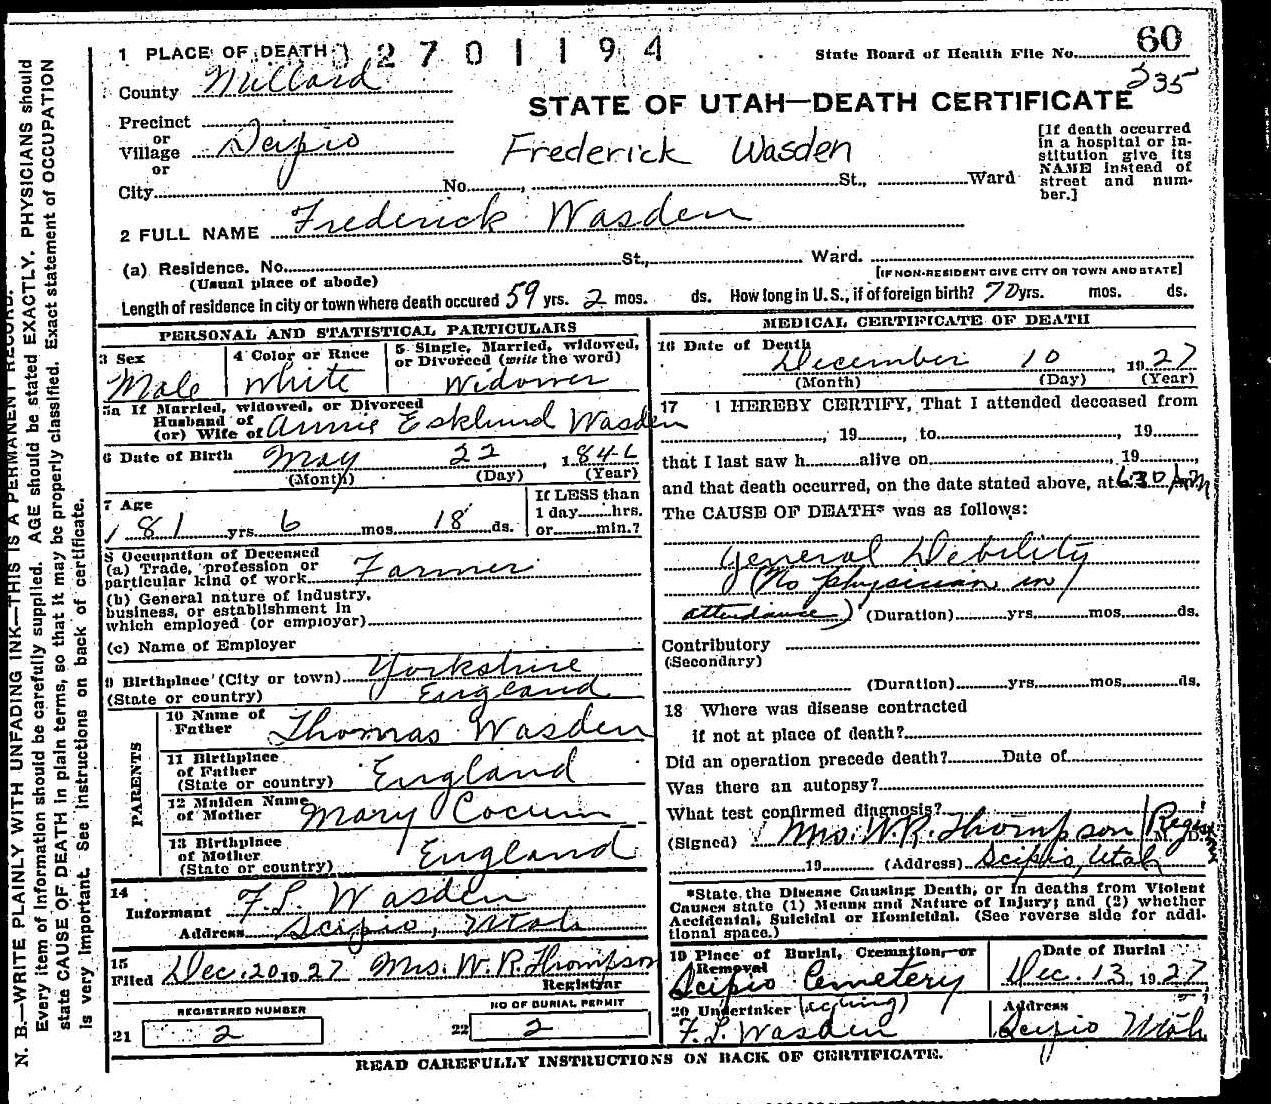 1 PLACE OF DEATH 3270 1194
State Board of Health File No. 60
County Millard
335
STATE OF UTAH—DEATH CERTIFICATE
Precinct
or
Village Scipio
or
City No. , St., Ward
Frederick Wasden
[If death occurred
in a hospital or in-
stitution give its
NAME instead of
street and num-
ber.]
2 FULL NAME Frederick Wasden
(a) Residence. No. St., Ward.
(Usual place of abode)
[IF NON-RESIDENT GIVE CITY OR TOWN AND STATE]
Length of residence in city or town where death occured 59 yrs. 2 mos. ds. How long in U.S., if of foreign birth? 70 yrs. mos. ds.
PERSONAL AND STATISTICAL PARTICULARS
3 Sex
Male
4 Color or Race
White
5. Single, Married, widowed,
or Divorced (write the word)
Widower
5a If Married, widowed, or Divorced
Husband of
(or) Wife of Annie Esklund Wasden
6 Date of Birth May 22, 1846
(Month) (Day) (Year)
7 Age
81 yrs. 6 mos. 18 ds.
If LESS than
1 day hrs.
or min.?
8 Occupation of Deceased
(a) Trade, profession or
particular kind of work Farmer
(b) General nature of industry,
business, or establishment in
which employed (or employer)
(c) Name of Employer
9 Birthplace (City or town) Yorkshire
(State or country) England
PARENTS
10 Name of
Father Thomas Wasden
11 Birthplace
of Father
(State or country) England
12 Maiden Name
of Mother Mary Cocum
13 Birthplace
of Mother
(State or country) England
14
Informant F. L. Wasden
Address Scipio, Utah
15
Filed Dec. 20 1927 Mrs. W. R. Thompson
Registrar
REGISTERED NUMBER
21 2
NO OF BURIAL PERMIT
22 2
MEDICAL CERTIFICATE OF DEATH
16 Date of Death
December 10, 1927
(Month) (Day) (Year)
17 I HEREBY CERTIFY, That I attended deceased from
, 19 , to , 19
that I last saw h alive on , 19 ,
and that death occurred, on the date stated above, at 6 30 m
The CAUSE OF DEATH* was as follows:
General Debility
(No physician in
attendance) (Duration) yrs. mos. ds.
Contributory
(Secondary)
(Duration) yrs. mos. ds.
18 Where was disease contracted
if not at place of death?
Did an operation precede death? Date of
Was there an autopsy?
What test confirmed diagnosis?
(Signed) Mrs. W. R. Thompson
19 (Address) Scipio, Utah
*State the Disease Causing Death, or in deaths from Violent
Causes state (1) Means and Nature of Injury; and (2) whether
Accidental, Suicidal or Homicidal. (See reverse side for addi-
tional space.)
19 Place of Burial, Cremation, or
Removal
Scipio Cemetery
Date of Burial
Dec. 13 1927
20 Undertaker (acting)
F. L. Wasden
Address
Scipio Utah
READ CAREFULLY INSTRUCTIONS ON BACK OF CERTIFICATE.
N. B.—WRITE PLAINLY WITH UNFADING INK—THIS IS A PERMANENT RECORD.
Every item of information should be carefully supplied. AGE should be stated EXACTLY. PHYSICIANS should
state CAUSE OF DEATH in plain terms, so that it may be properly classified. Exact statement of OCCUPATION
is very important. See instructions on back of certificate.